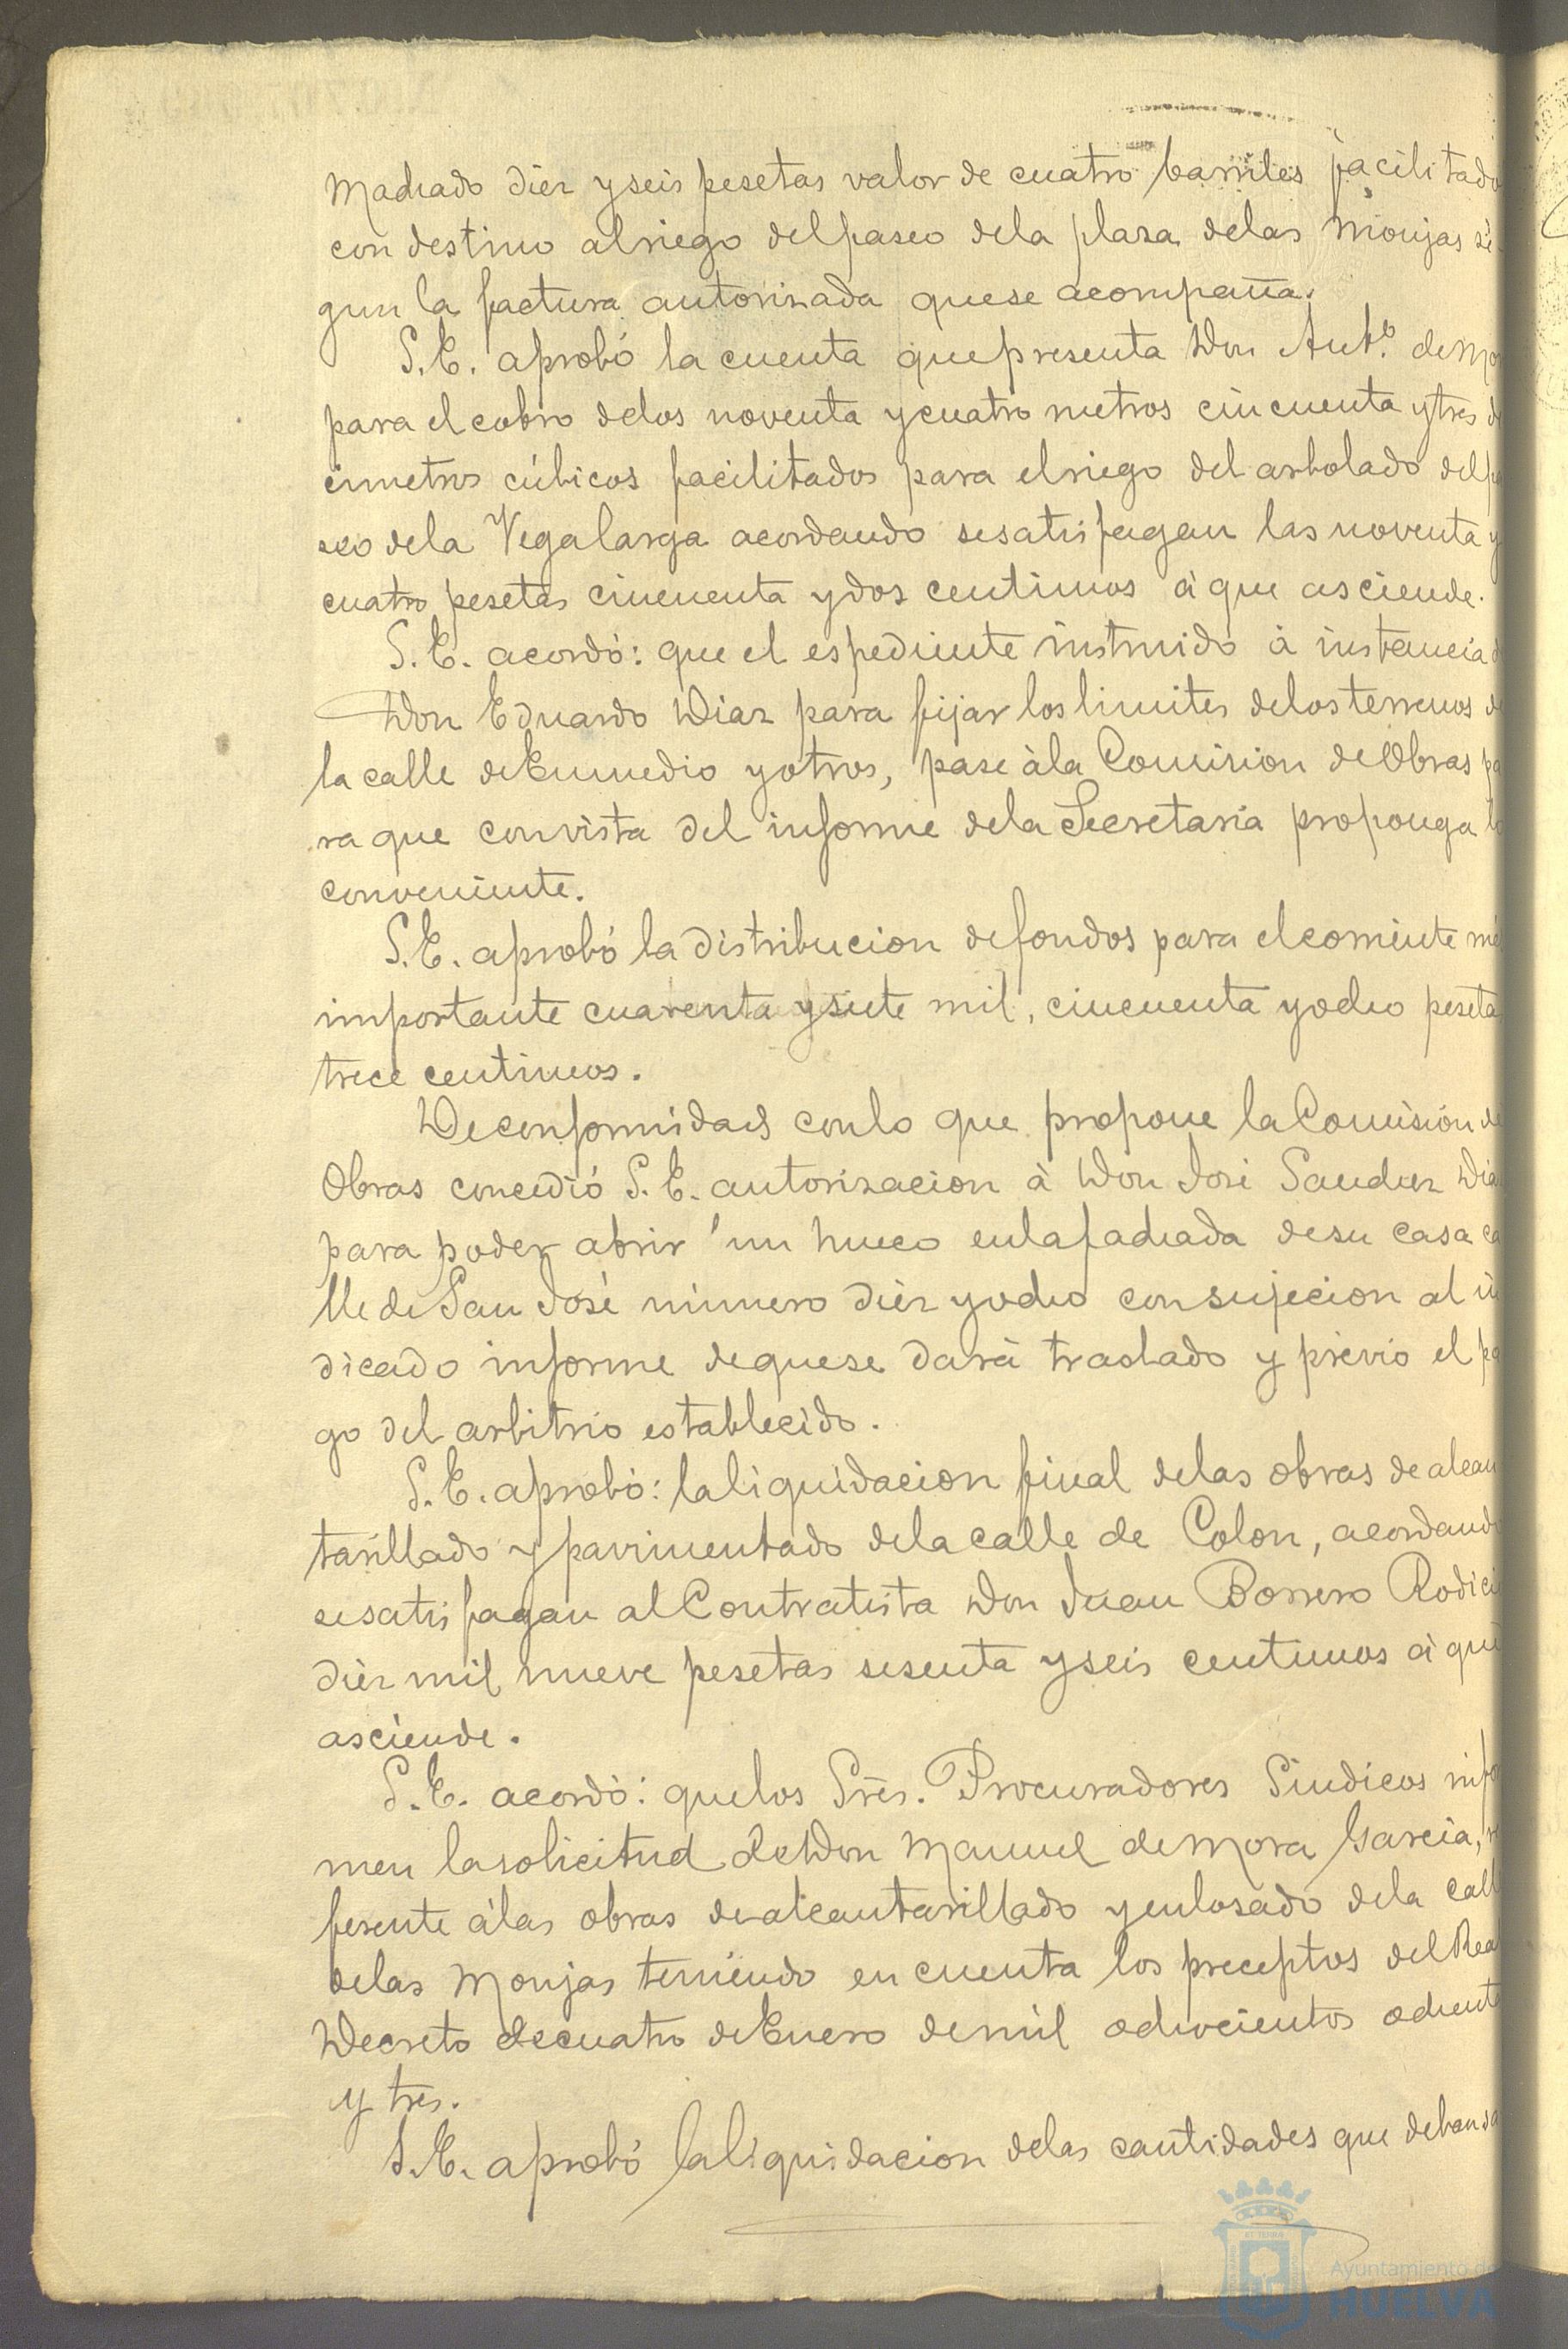 Machado diez y seis pesetas valor de cuatro barriles facilitado
con destino al riego del paseo de la plaza de las Monjas se
gun la factura autorizada que se acompaña.
S. E. aprobó la cuenta que presenta Don Antº. de Mo
para el cobro de los noventa y cuatro metros cincuenta y tres de
cimetros cúbicos facilitados para el riego del arbolado del pa
seo de la Vegalarga acordando se satisfagan las noventa y
cuatro pesetas cincuenta y dos centimos á que asciende.
S. E. acordó: que el espediente instruido á instancia d
Don Eduardo Diaz para fijar los limites de los terrenos de
la calle de Enmedio y otros, pase á la Comision de Obras pa
ra que con vista del informe de la Secretaria proponga lo
conveniente.
S. E. aprobó la distribucion de fondos para el corriente me
importante cuarenta y siete mil, cincuenta y ocho peseta
trece centimos.
De conformidad con lo que propone la Comisión de
Obras concedió S. E. autorizacion á Don José Sanchez Dia
para poder abrir un hueco en la fachada de su casa ca
lle de San José número diez y ocho con sujecion al in
dicado informe de que se dará traslado y prévio el pa
go del arbitrio establecido.
S. E. aprobó: la liquidacion final de las obras de alcan
tarillado y pavimentado de la calle de Colon, acordando
se satisfagan al Contratista Don Juan Borrero Rodici
diez mil nueve pesetas sesenta y seis centimos á que
asciende.
S. E. acordó: que los Sres. Procuradores Sindicos infor
men la solicitud de Don Manuel de Mora Garcia, re
ferente á las obras de alcantarillado y enlosado de la call
de las Monjas teniendo en cuenta los preceptos del Rea
Decreto de cuatro de Enero de mil ochocientos ochenta
y tres.
S. E. aprobó la liquidacion de las cantidades que deben sa
Ayuntamiento de
HUELVA